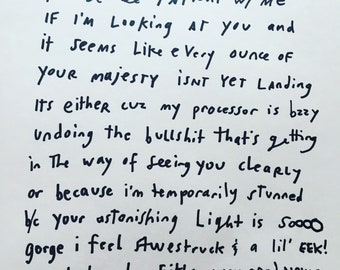 PATIENT w/ ME
IF i'm LOOKING AT you and
it seems like every ounce of
your majesty isnt yet landing
its either cuz my processor is bzzy
undoing the bullshit that's getting
in the way of seeing you clearly
or because i'm temporarily stunned
b/c your astonishing Light is soooo
gorge i feel Awestruck & a lil' EEK!